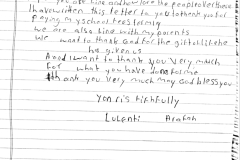 you are fine and how are the people over there
I have written this letter to you to thank you for
Paying my school fees for me
we are also fine with my parents
We want to thank God for the gift of life he
has given us
And I want to thank you very much
For what you have done for me
thank you very much may God bless you
Yours faithfully